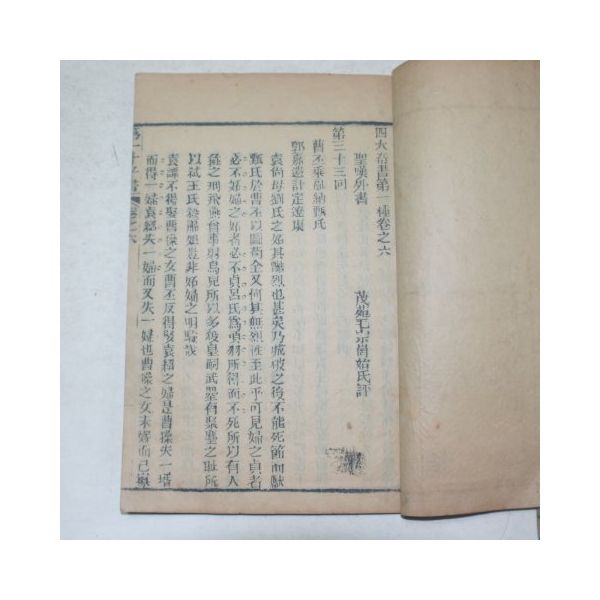 四大奇書第一種卷之六
聖嘆外書
茂苑毛宗崗始氏評
第三十三回
曹丕乘亂納甄氏
郭嘉遺計定遼東
袁尚母劉氏之妬其酷烈也甚矣乃城破之後不能死節而獻
甄氏於曹丕以圖苟全又何其無烈性至此乎可見婦之貞者
必不妬婦之妬者必不貞呂氏爲項羽所得而不死所以有人
彘之刑飛燕有事射鳥兒所以多殺皇嗣武曌有聚麀之恥所
以弑王氏殺蕭妃豈非妬婦之明驗哉
袁譚不得娶曹操之女曹丕反得娶袁紹之婦是曹操失一壻
而得一婦袁紹失一婦而又失一婦也曹操之女未嫁而已寧
第一才子書 卷之六